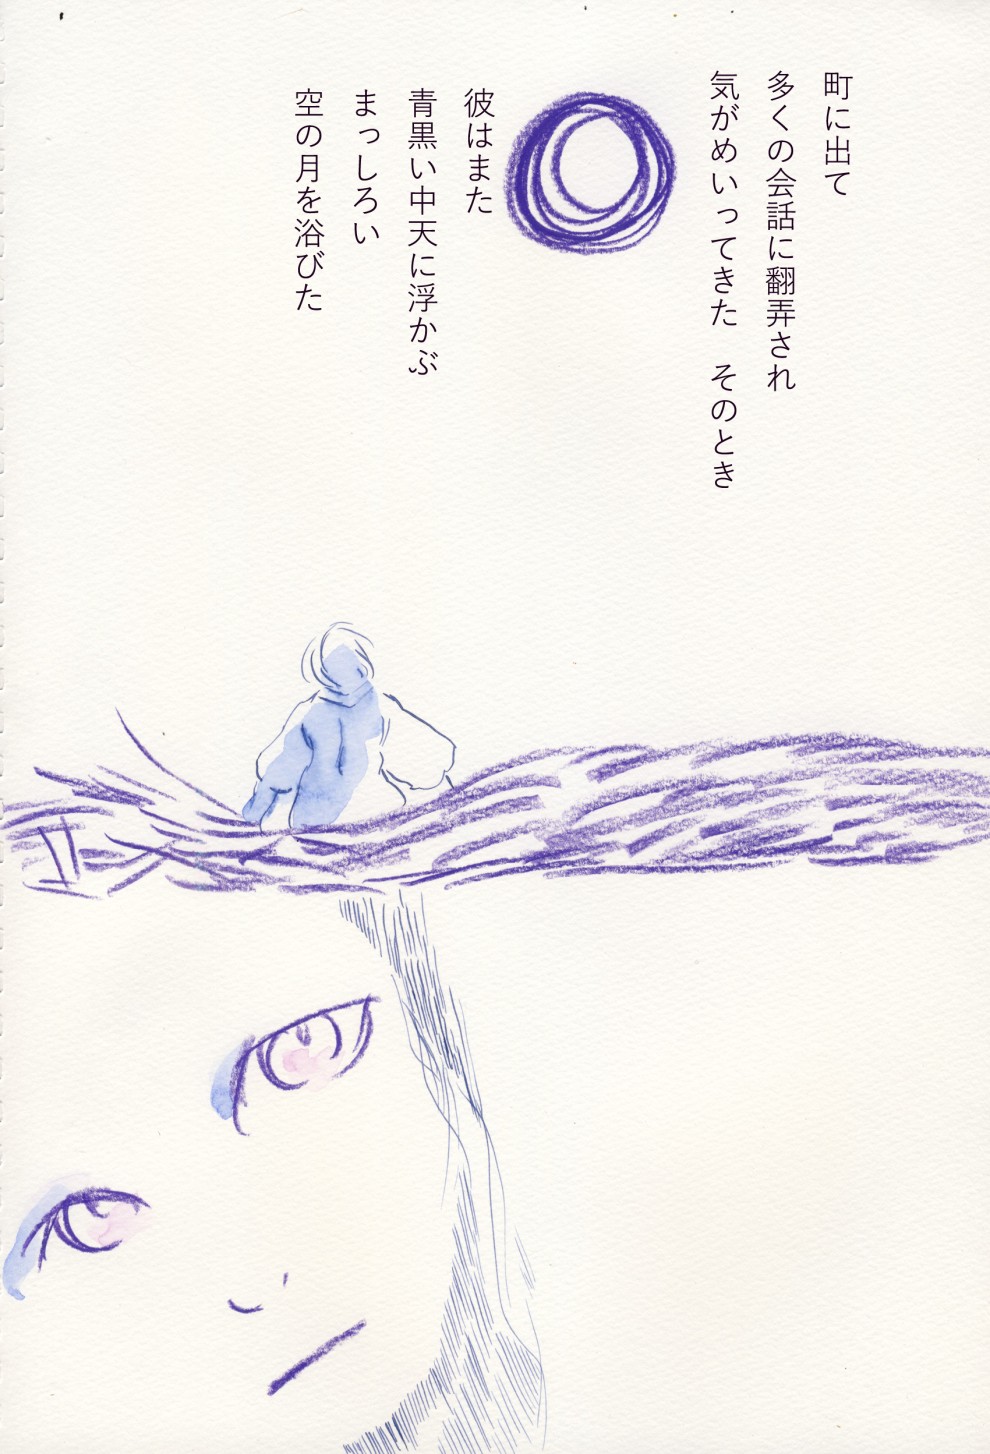 町に出て
多くの会話に翻弄され
気がめいってきた　そのとき
彼はまた
青黒い中天に浮かぶ
まっしろい
空の月を浴びた